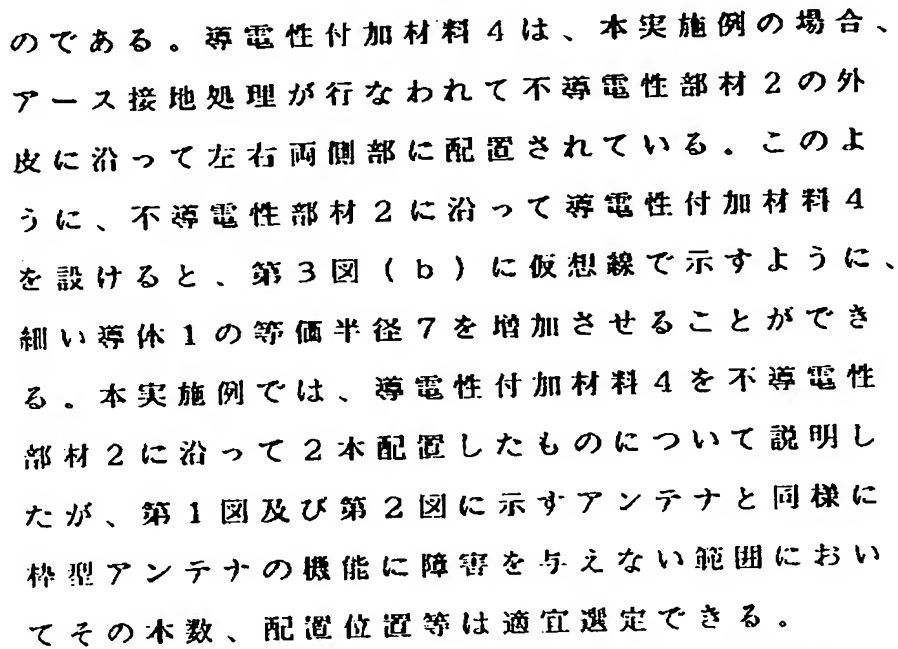 のである。導電性付加材料4は、本実施例の場合、
アース接地処理が行なわれて不導電性部材2の外
皮に沿って左右両側部に配置されている。このよ
うに、不導電性部材2に沿って導電性付加材料4
を設けると、第3図(b)に仮想線で示すように、
細い導体1の等価半径7を増加させることができ
る。本実施例では、導電性付加材料4を不導電性
部材2に沿って2本配置したものについて説明し
たが、第1図及び第2図に示すアンテナと同様に
枠型アンテナの機能に障害を与えない範囲におい
てその本数、配置位置等は適宜選定できる。